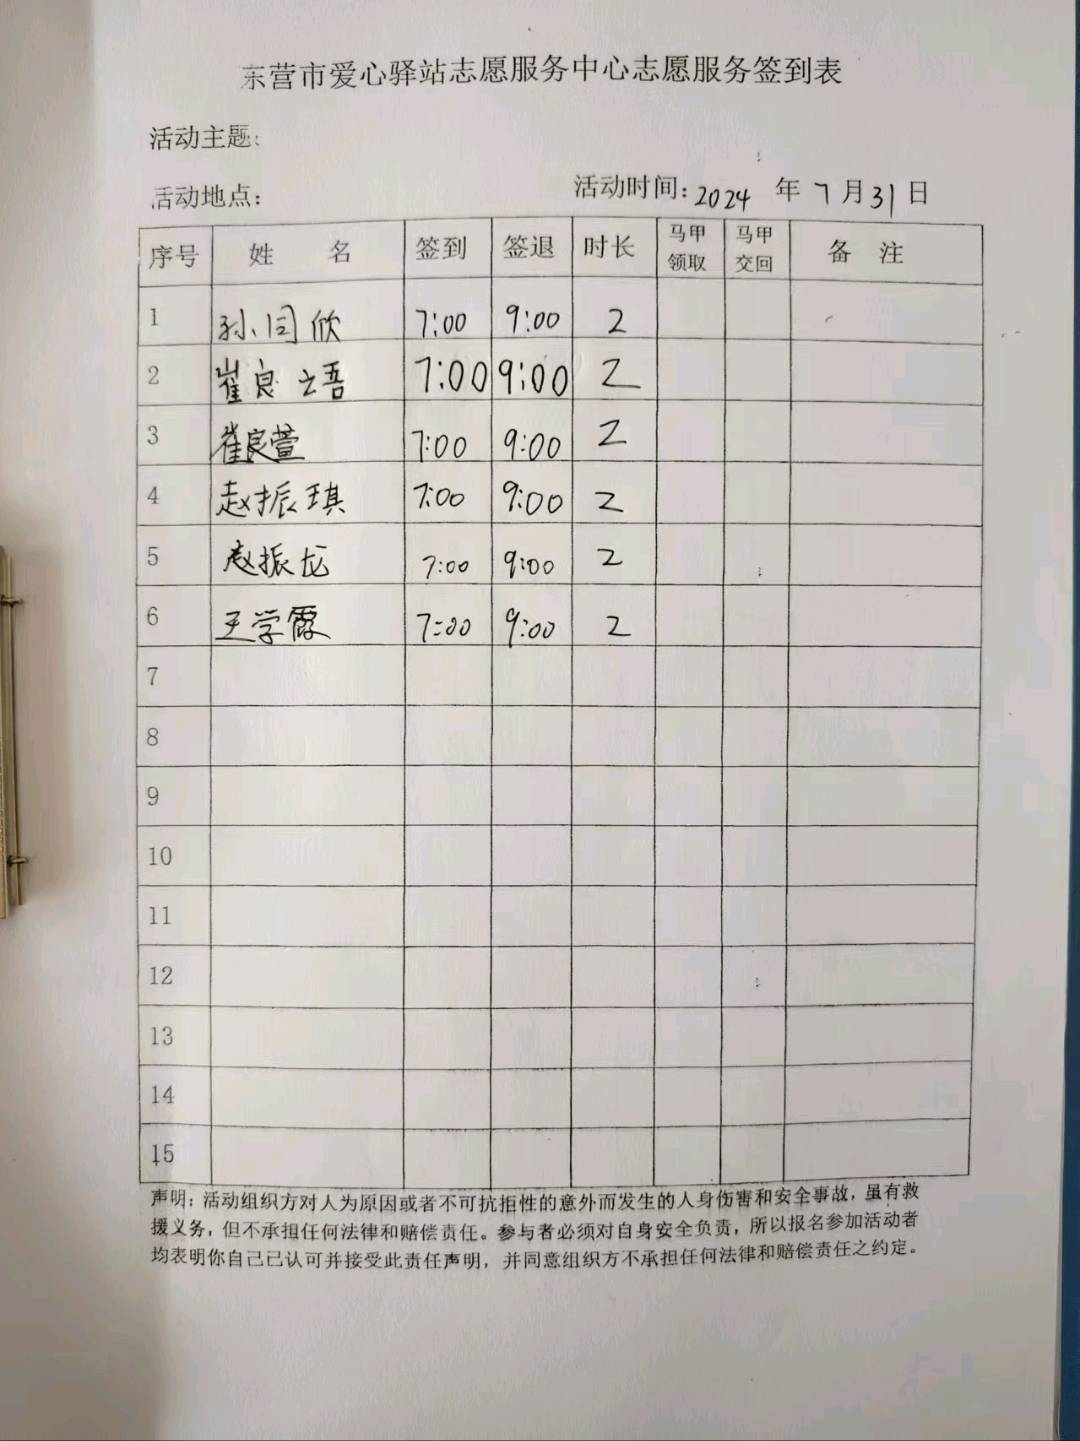 东营市爱心驿站志愿服务中心志愿服务签到表
活动主题:
活动地点: 活动时间: 2024 年 7 月 31 日
序号 姓 名 签到 签退 时长 马甲领取 马甲交回 备 注
1 孙同欣 7:00 9:00 2
2 崔良之吾 7:00 9:00 2
3 崔良萱 7:00 9:00 2
4 赵振琪 7:00 9:00 2
5 赵振龙 7:00 9:00 2
6 王学霞 7:00 9:00 2
7
8
9
10
11
12
13
14
15
声明: 活动组织方对人为原因或者不可抗拒性的意外而发生的人身伤害和安全事故, 虽有救
援义务, 但不承担任何法律和赔偿责任。参与者必须对自身安全负责, 所以报名参加活动者
均表明你自己已认可并接受此责任声明, 并同意组织方不承担任何法律和赔偿责任之约定。